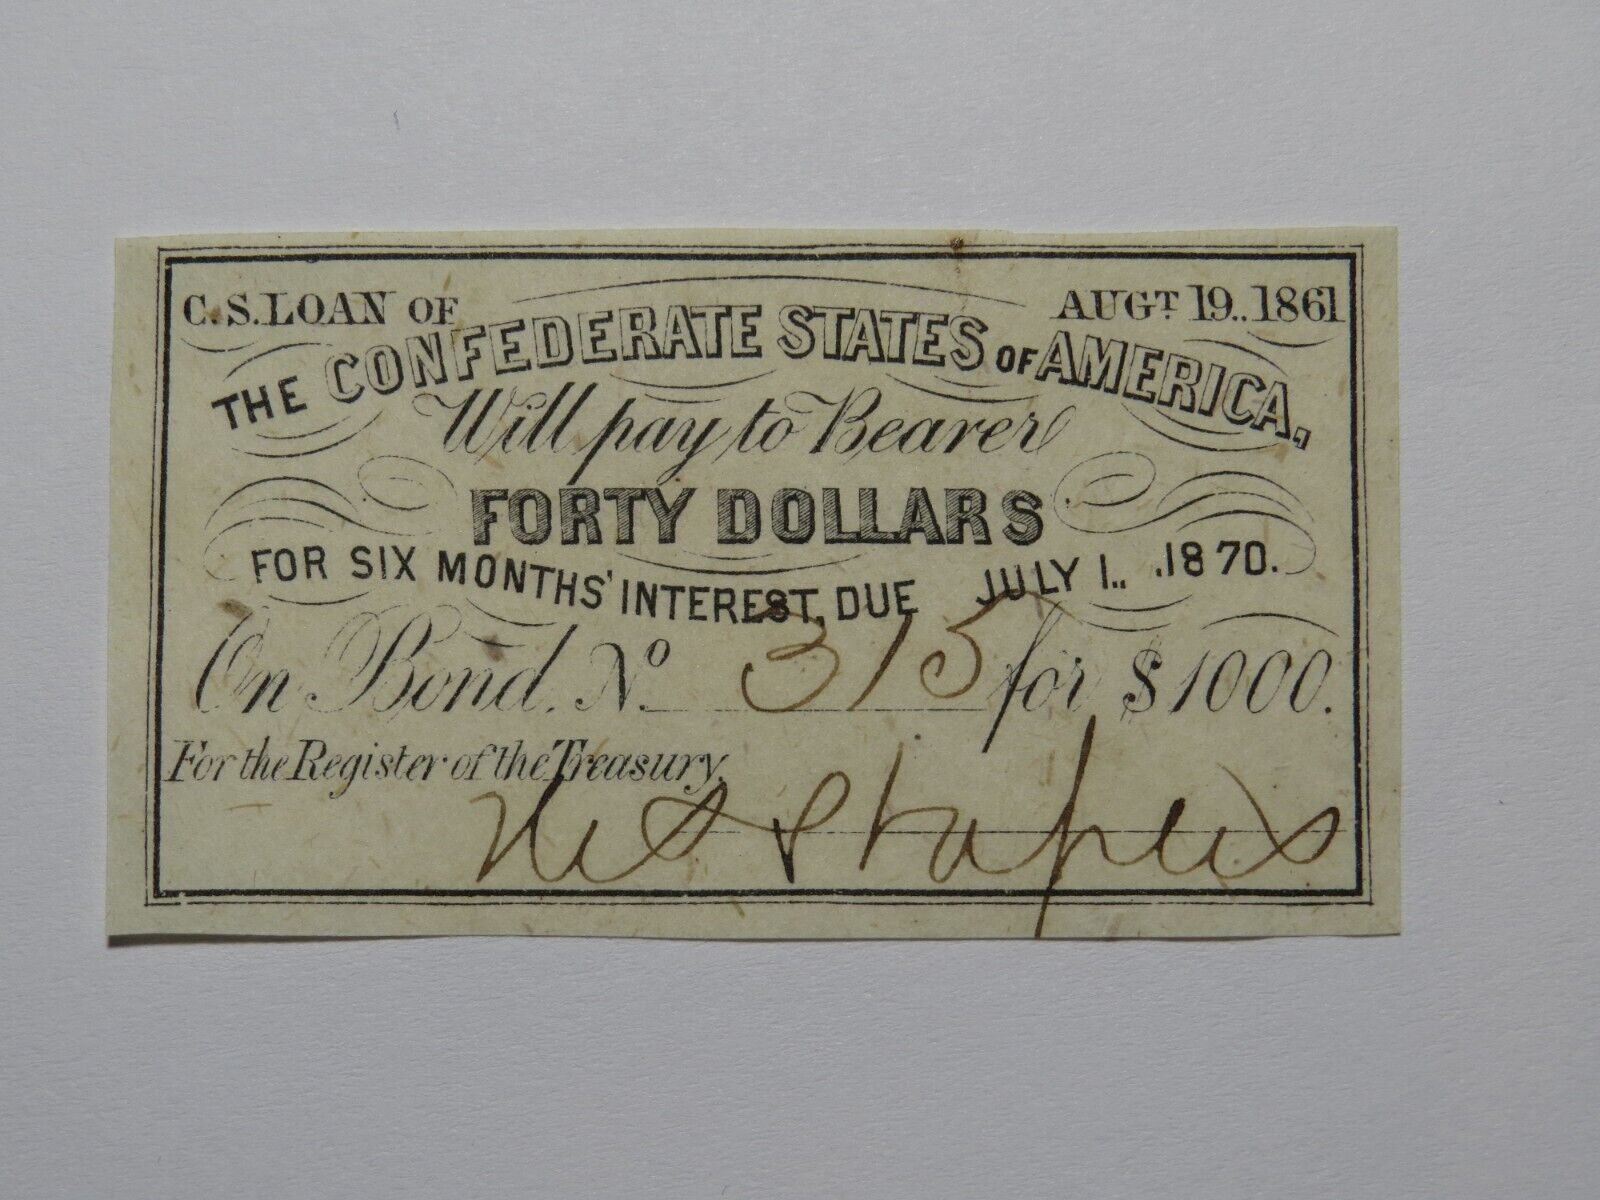 C.S. LOAN OF AUGT. 19.. 1861
THE CONFEDERATE STATES OF AMERICA,
Will pay to Bearer
FORTY DOLLARS
FOR SIX MONTHS' INTEREST, DUE JULY 1.. .1870.
On Bond. No 315 for $1000.
For the Register of the Treasury.